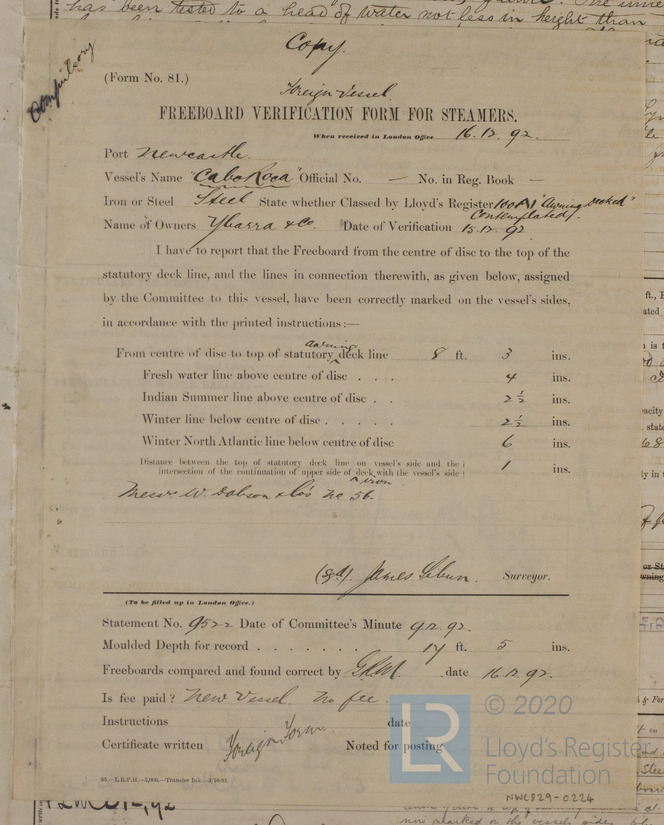 has been tested to a head of water not less in height than
Copy.
Compulsory
(Form No. 81.)
Foreign Vessel
FREEBOARD VERIFICATION FORM FOR STEAMERS.
When received in London Office 16.12.92.
Port Newcastle.
Vessel's Name "Cabo Roca" Official No. — No. in Reg. Book —
Iron or Steel Steel State whether Classed by Lloyd's Register 100A1 "Awning decked"
Contemplated.
Name of Owners Ybarra & Co. Date of Verification 15.12.92
I have to report that the Freeboard from the centre of disc to the top of the
statutory deck line, and the lines in connection therewith, as given below, assigned
by the Committee to this vessel, have been correctly marked on the vessel's sides,
in accordance with the printed instructions:—
awning
From centre of disc to top of statutory deck line 8 ft. 3 ins.
Fresh water line above centre of disc . . . 4 ins.
Indian Summer line above centre of disc . . 2½ ins.
Winter line below centre of disc . . . . . 2½ ins.
Winter North Atlantic line below centre of disc 6 ins.
Distance between the top of statutory deck line on vessel's side and the
intersection of the continuation of upper side of deck with the vessel's side 1 ins.
iron
Messrs W. Dobson & Co's No 56.
(Sgd). James Surveyor.
(To be filled up in London Office.)
Statement No. 9522 Date of Committee's Minute 9.12.92.
Moulded Depth for record . . . . . . . 17 ft. 5 ins.
Freeboards compared and found correct by date 16.12.92.
Is fee paid? New Vessel no fee.
Instructions date
Certificate written Foreign Form Noted for posting
© 2020
LR
Lloyd's Register
Foundation
NWC829-0224